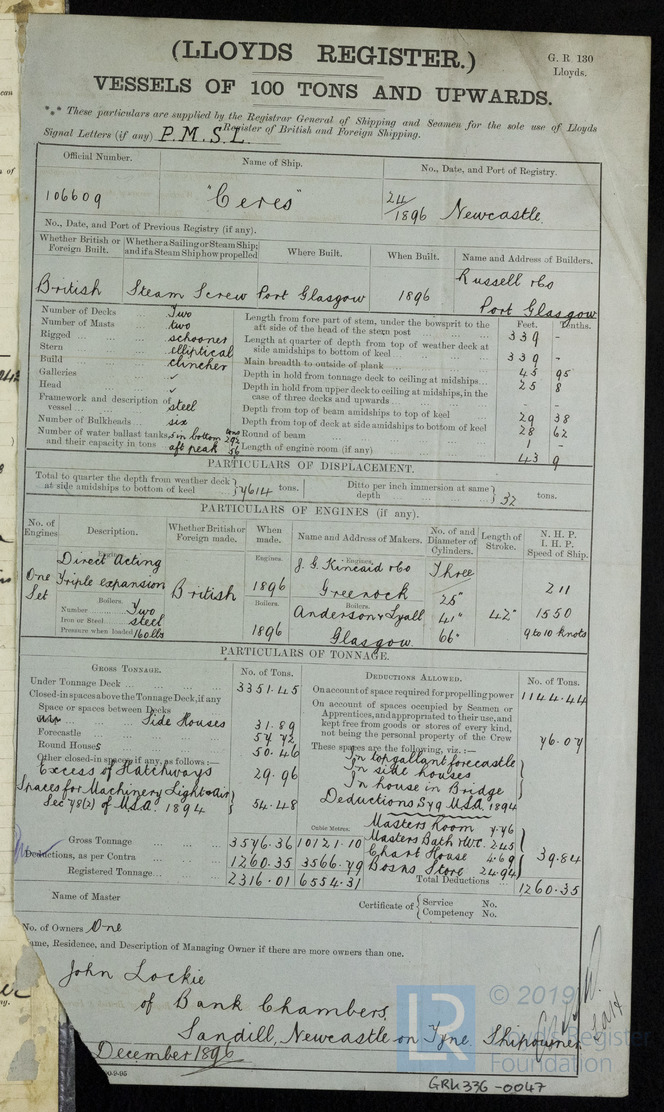 (LLOYDS REGISTER.)
G. R 130
Lloyds.
VESSELS OF 100 TONS AND UPWARDS.
*** These particulars are supplied by the Registrar General of Shipping and Seamen for the sole use of Lloyds
Register of British and Foreign Shipping.
Signal Letters (if any) P.M.S.L.
Official Number. Name of Ship. No., Date, and Port of Registry.
106609 "Ceres" 24/1896 Newcastle.
No., Date, and Port of Previous Registry (if any).
Whether British or Foreign Built. Whether a Sailing or Steam Ship; and if a Steam Ship how propelled Where Built. When Built. Name and Address of Builders.
British Steam Screw Port Glasgow 1896 Russell & Co Port Glasgow
Number of Decks Two
Number of Masts two
Rigged schooner
Stern elliptical
Build clincher
Galleries ✓
Head ✓
Framework and description of vessel steel
Number of Bulkheads six
Number of water ballast tanks, and their capacity in tons 5 in bottom aft peak
Feet. Tenths.
Length from fore part of stem, under the bowsprit to the aft side of the head of the stern post 339 -
Length at quarter of depth from top of weather deck at side amidships to bottom of keel 339 -
Main breadth to outside of plank 45 95
Depth in hold from tonnage deck to ceiling at midships 25 8
Depth in hold from upper deck to ceiling at midships, in the case of three decks and upwards - -
Depth from top of beam amidships to top of keel 29 38
Depth from top of deck at side amidships to bottom of keel 28 62
Round of beam 1 -
Length of engine room (if any) 43 9
PARTICULARS OF DISPLACEMENT.
Total to quarter the depth from weather deck at side amidships to bottom of keel 7614 tons. Ditto per inch immersion at same depth 32 tons.
PARTICULARS OF ENGINES (if any).
No. of Engines. Description. Whether British or Foreign made. When made. Name and Address of Makers. No. of and Diameter of Cylinders. Length of Stroke. N. H. P. I. H. P. Speed of Ship.
One Set
Engines.
Direct Acting
Triple expansion
Boilers.
Number Two
Iron or Steel steel
Pressure when loaded 160 lbs
British
Engines.
1896
Boilers.
1896
Engines.
J. G. Kincaid & Co
Greenock
Boilers.
Anderson & Lyall
Glasgow.
Three
25"
41"
66"
42"
211
1550
9 to 10 knots
PARTICULARS OF TONNAGE.
GROSS TONNAGE. No. of Tons.
Under Tonnage Deck 3351.45
Closed-in spaces above the Tonnage Deck, if any
Space or spaces between Decks
Side Houses 31.89
Forecastle 57.72
Round Houses 50.46
Other closed-in spaces, if any, as follows:—
Excess of Hatchways 29.96
Spaces for Machinery Light & Air
Sec 78(2) of M.S.A. 1894 54.48
Cubic Metres.
Gross Tonnage 3576.36 10121.10
Deductions, as per Contra 1260.35 3566.79
Registered Tonnage 2316.01 6554.31
DEDUCTIONS ALLOWED. No. of Tons.
On account of space required for propelling power 1144.44
On account of spaces occupied by Seamen or Apprentices, and appropriated to their use, and kept free from goods or stores of every kind, not being the personal property of the Crew 76.07
These spaces are the following, viz.:—
In topgallant forecastle
In side houses
In house in Bridge
Deductions S 79 M.S.A. 1894
Masters Room 7.76
Masters Bath & W.C. 2.45
Chart House 4.69
Bosns Store 24.94
39.84
Total Deductions 1260.35
Name of Master
Certificate of { Service No.
Competency No.
No. of Owners One
ame, Residence, and Description of Managing Owner if there are more owners than one.
John Lockie
of Bank Chambers,
Sandill, Newcastle on Tyne. Shipowner
December 1896
© 2019
LR
Lloyd's Register
Foundation
GRK336-0047